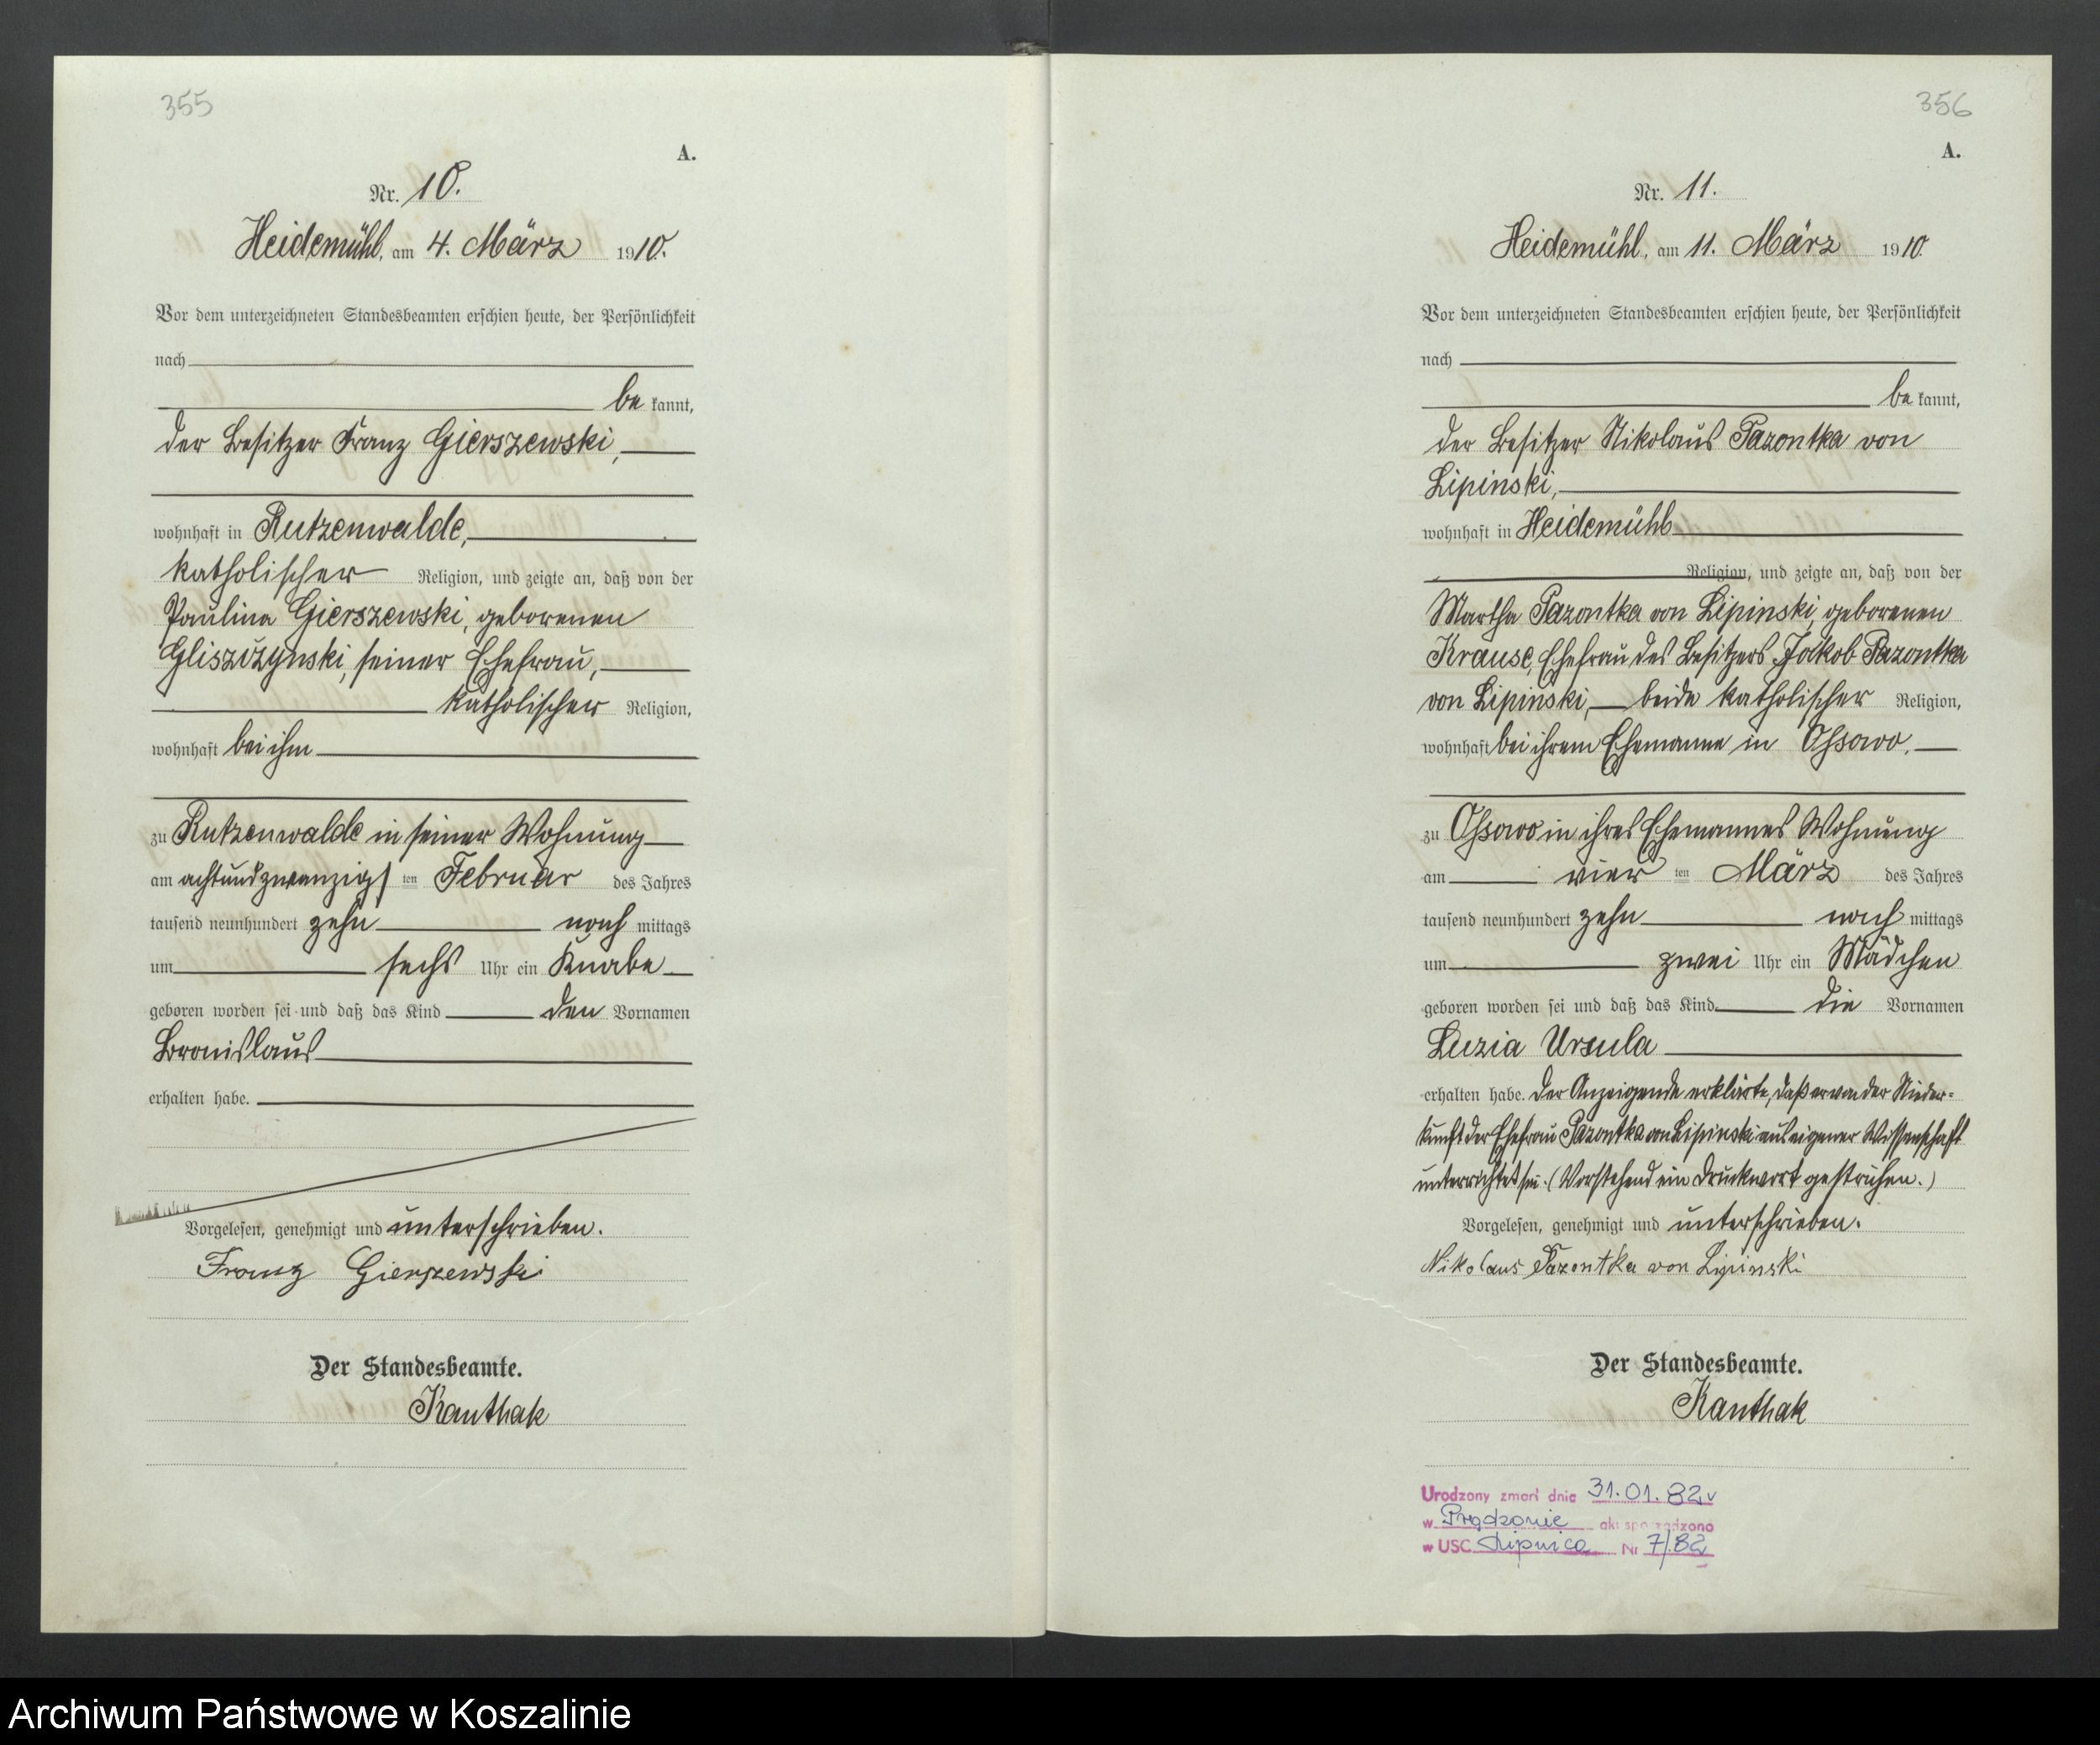 355
A.
Nr. 10.
Heidemühl, am 4. März 1910.
Vor dem unterzeichneten Standesbeamten erschien heute, der Persönlichkeit
nach
be kannt,
der Besitzer Franz Gierszewski,
wohnhaft in Rutzenwalde,
katholischer Religion, und zeigte an, daß von der
Paulina Gierszewski, geborenen
Gliszczynski, seiner Ehefrau,
katholischer Religion,
wohnhaft bei ihm
zu Rutzenwalde in seiner Wohnung
am achtundzwanzigsten Februar des Jahres
tausend neunhundert zehn nach mittags
um sechs Uhr ein Knabe
geboren worden sei und daß das Kind den Vornamen
Bronislaus
erhalten habe.
Vorgelesen, genehmigt und unterschrieben.
Franz Gierszewski
Der Standesbeamte.
Kanthak
356
A.
Nr. 11.
Heidemühl, am 11. März 1910.
Vor dem unterzeichneten Standesbeamten erschien heute, der Persönlichkeit
nach
be kannt,
der Besitzer Nikolaus Pazontka von
Lipinski,
wohnhaft in Heidemühl
Religion, und zeigte an, daß von der
Martha Pazontka von Lipinski, geborenen
Krause, Ehefrau des Besitzers Jakob Pazontka
von Lipinski, beide katholischer Religion,
wohnhaft bei ihrem Ehemanne in Ossowo,
zu Ossowo in ihres Ehemannes Wohnung
am vier ten März des Jahres
tausend neunhundert zehn nach mittags
um zwei Uhr ein Mädchen
geboren worden sei und daß das Kind die Vornamen
Luzia Ursula
erhalten habe. Der Anzeigende erklärte, daß er von der Nieder-
kunft der Ehefrau Pazontka von Lipinski aus eigener Wissenschaft
unterrichtet sei. (Vorstehend ein Druckwort gestrichen.)
Vorgelesen, genehmigt und unterschrieben.
Nikolaus Pazontka von Lipinski
Der Standesbeamte.
Kanthak
Urodzony zmarł dnia 31.01.82
w Prądzonie akt sporządzono
w USC Lipnica Nr 7/82
Archiwum Państwowe w Koszalinie